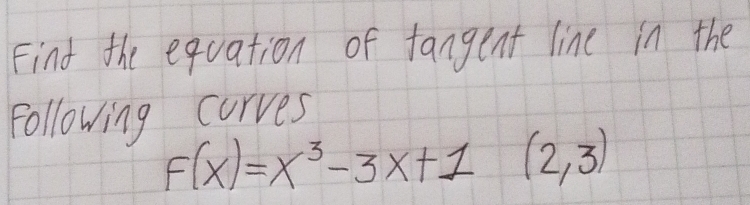 Find the equation of tangent line in the
Following curves
F(x)=x³-3x+1 (2,3)